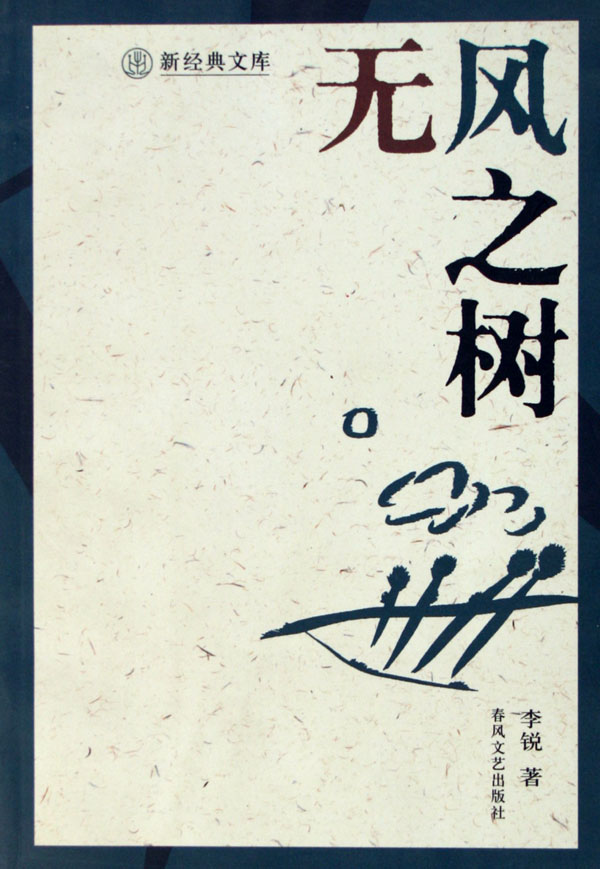 新经典文库
无
风之树
李锐 著
春风文艺出版社